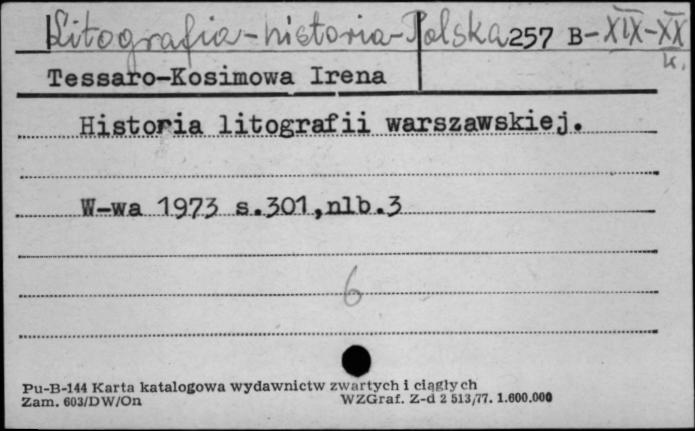 Litografia-historia-Polska 257 B-XIX-XX
w.
Tessaro-Kosimowa Irena
Historia litografii warszawskiej.
W-wa 1973 s.301,nlb.3
6
Pu-B-144 Karta katalogowa wydawnictw zwartych i ciągłych
Zam. 603/DW/On WZGraf. Z-d 2 513/77. 1.600.000